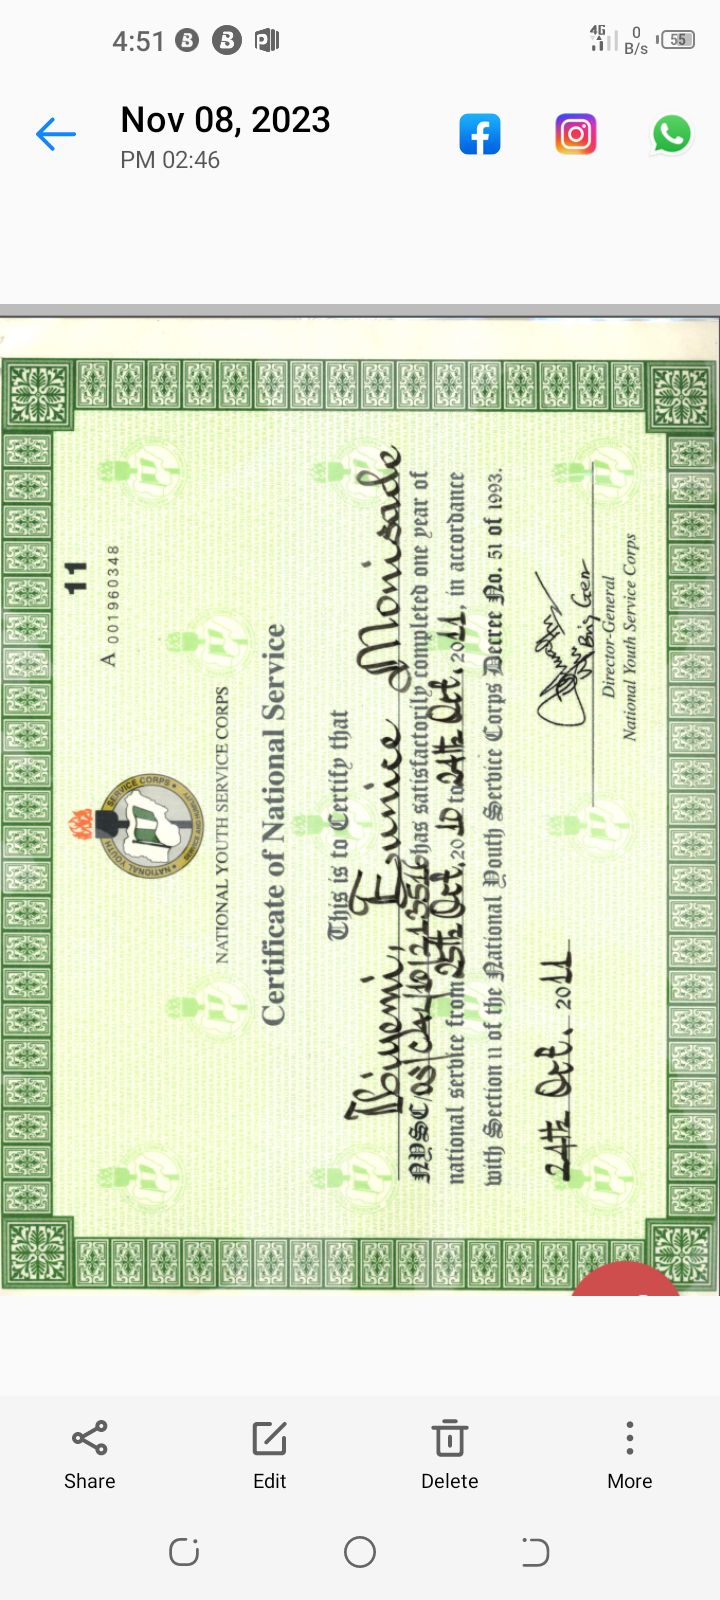 4:51
4G
0
B/s
55
Nov 08, 2023
PM 02:46
11
A 001960348
NATIONAL YOUTH SERVICE CORPS
Certificate of National Service
This is to Certify that
Ibiyemi, Eunice Monisade
has satisfactorily completed one year of
national service from 25th Oct. 2010 to 24th Oct. 2011, in accordance
with Section 11 of the National Youth Service Corps Decree No. 51 of 1993.
24th Oct. 2011
Brig Gen
Director-General
National Youth Service Corps
Share
Edit
Delete
More